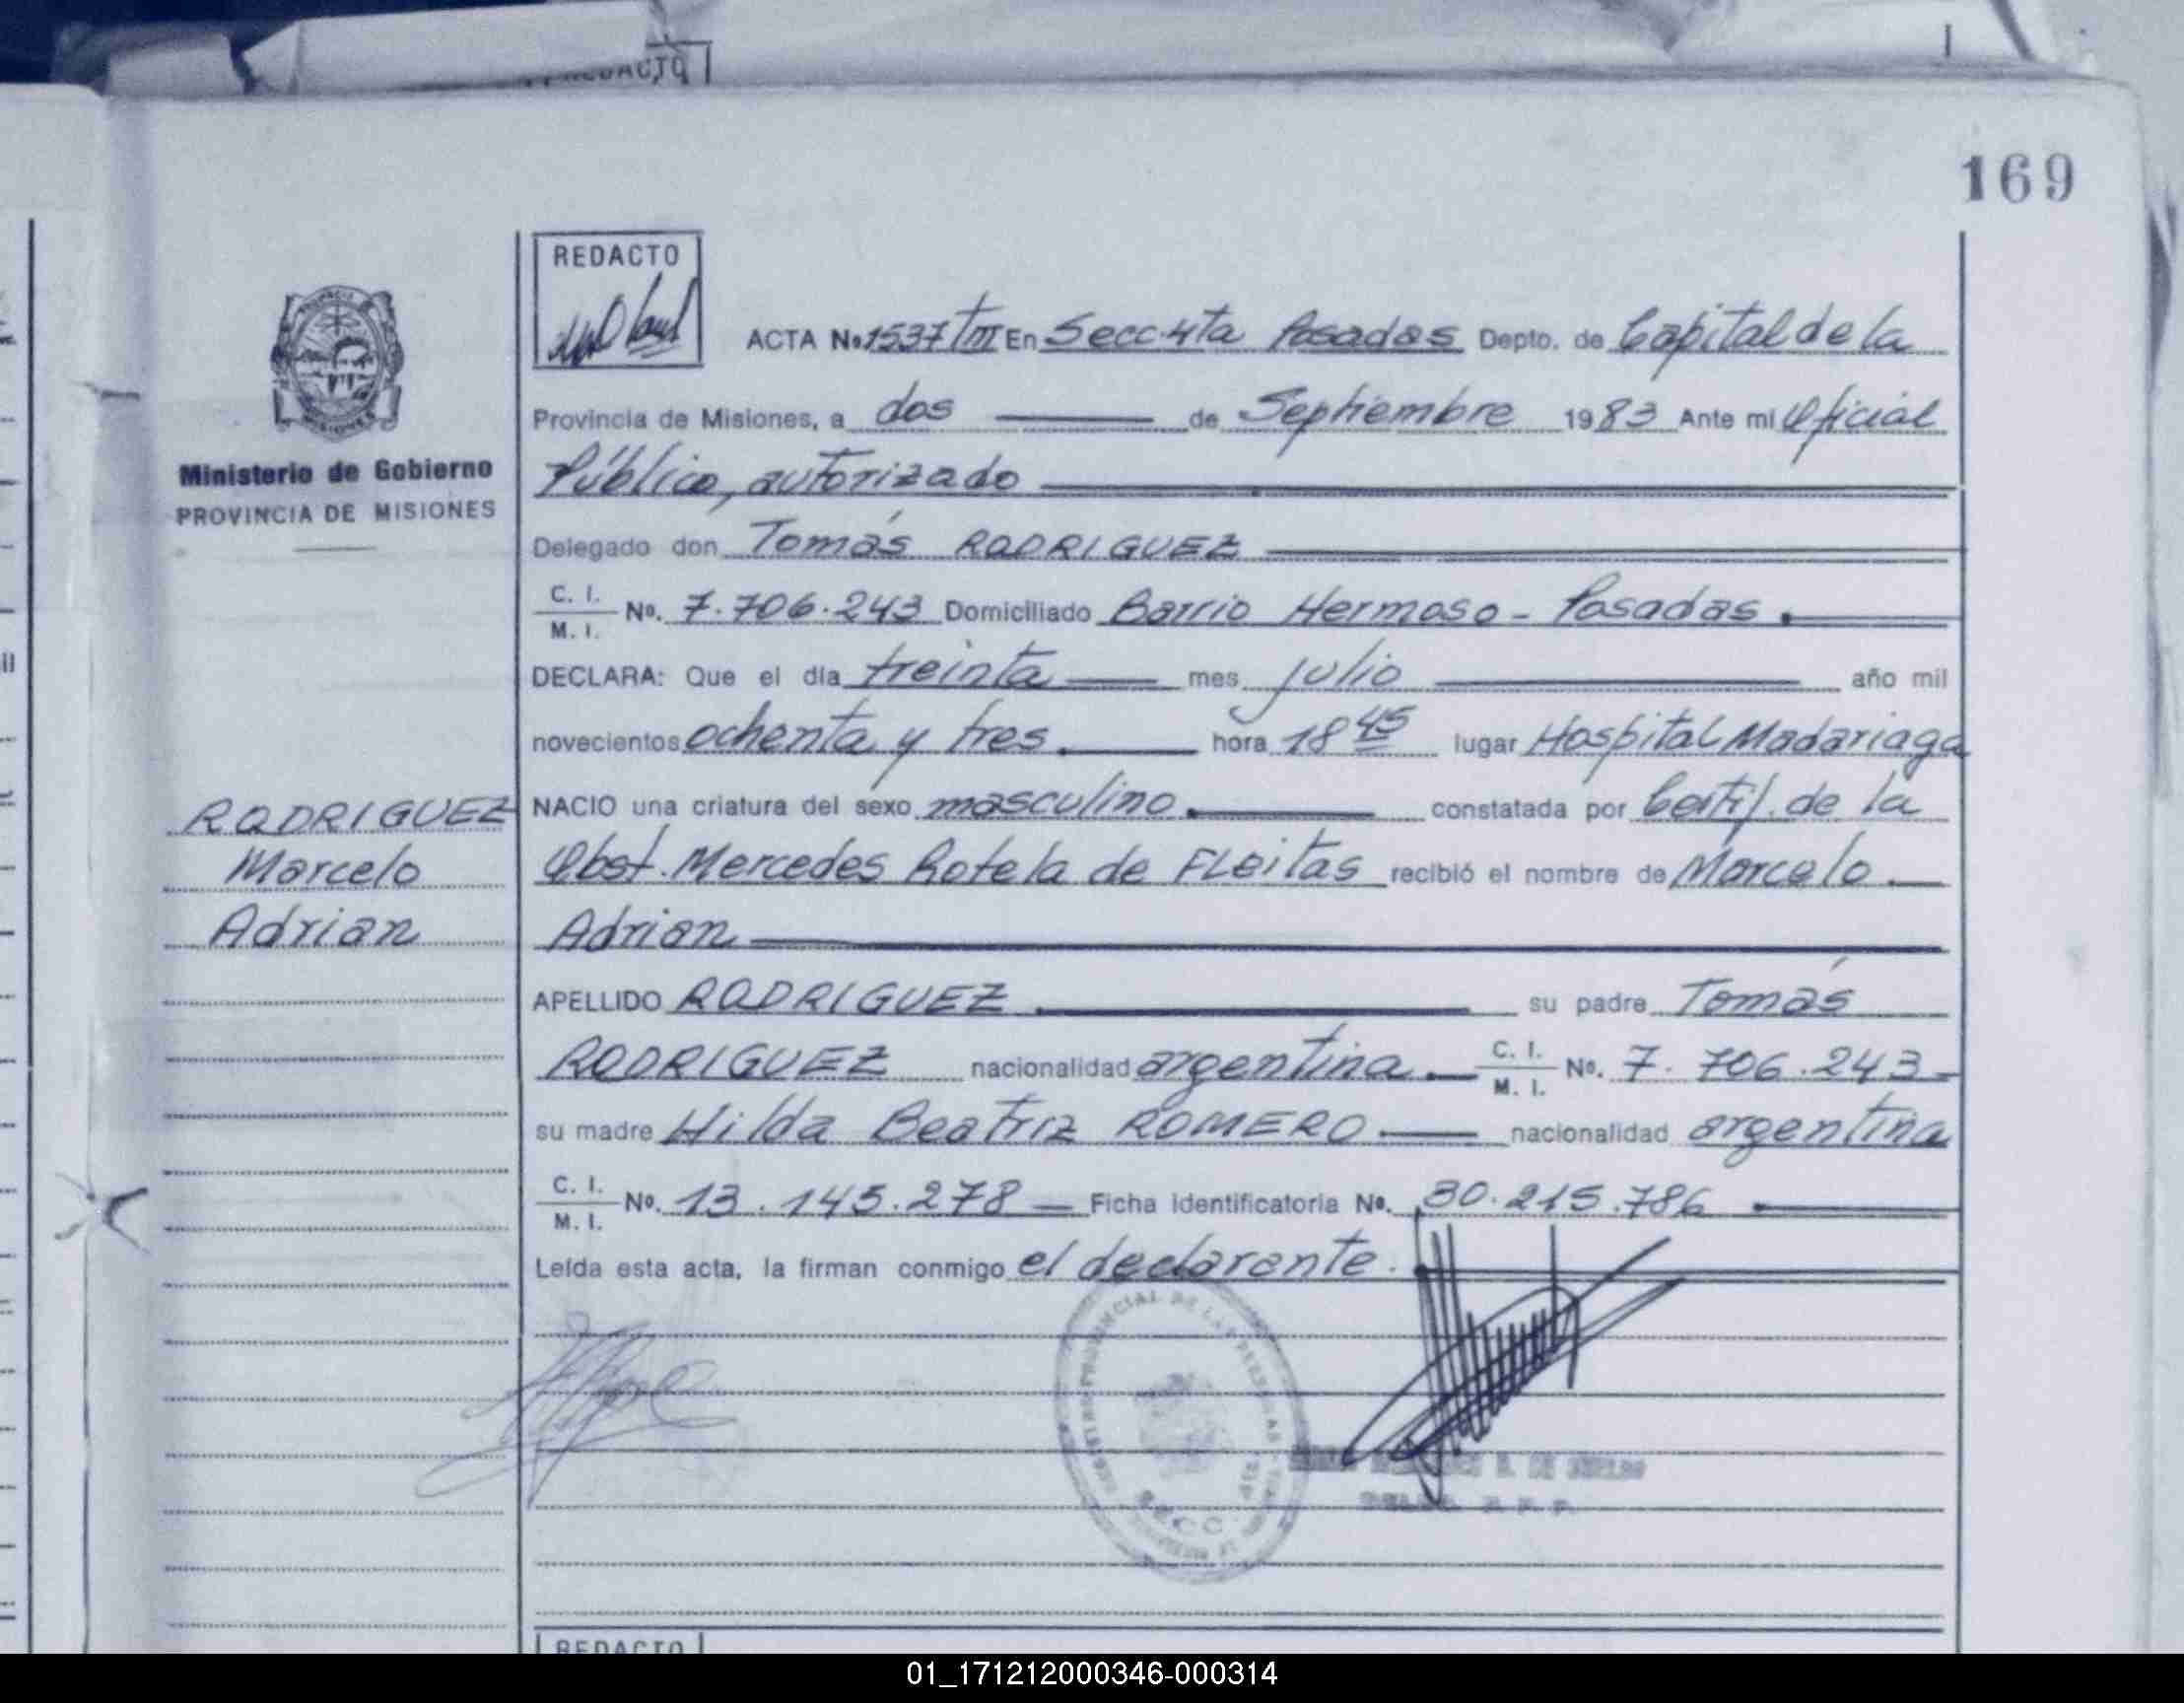 REDACTO
169
REDACTO
ACTA No 1537 TIII En Secc. 4ta Posadas Depto. de Capital de la
Provincia de Misiones, a dos de Septiembre 1983 Ante mi Oficial
Ministerio de Gobierno
PROVINCIA DE MISIONES
Público, autorizado
Delegado don Tomás RODRIGUEZ
C. I.
M. I. No. 7.706.243 Domiciliado Barrio Hermoso - Posadas.
DECLARA: Que el día treinta mes julio año mil
novecientos ochenta y tres. hora 18 45 lugar Hospital Madariaga
RODRIGUEZ
Marcelo
Adrian
NACIO una criatura del sexo masculino. constatada por Certif. de la
Obst. Mercedes Rotela de FLeitas recibió el nombre de Marcelo
Adrian
APELLIDO RODRIGUEZ su padre Tomás
RODRIGUEZ nacionalidad argentina. C. I.
M. I. No. 7.706.243
su madre Hilda Beatriz ROMERO nacionalidad argentina
C. I.
M. I. No. 13.145.278 Ficha Identificatoria No. 30.215.786
Leída esta acta, la firman conmigo el declarante.
REDACTO
01_171212000346-000314